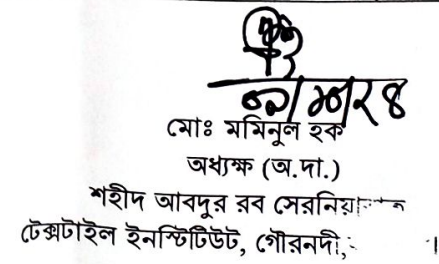 মোঃ মমিনুল হক
অধ্যক্ষ (অ.দা.)
শহীদ আবদুর রব
টেক্সটাইল ইনস্টিটিউট, গৌরনদী,